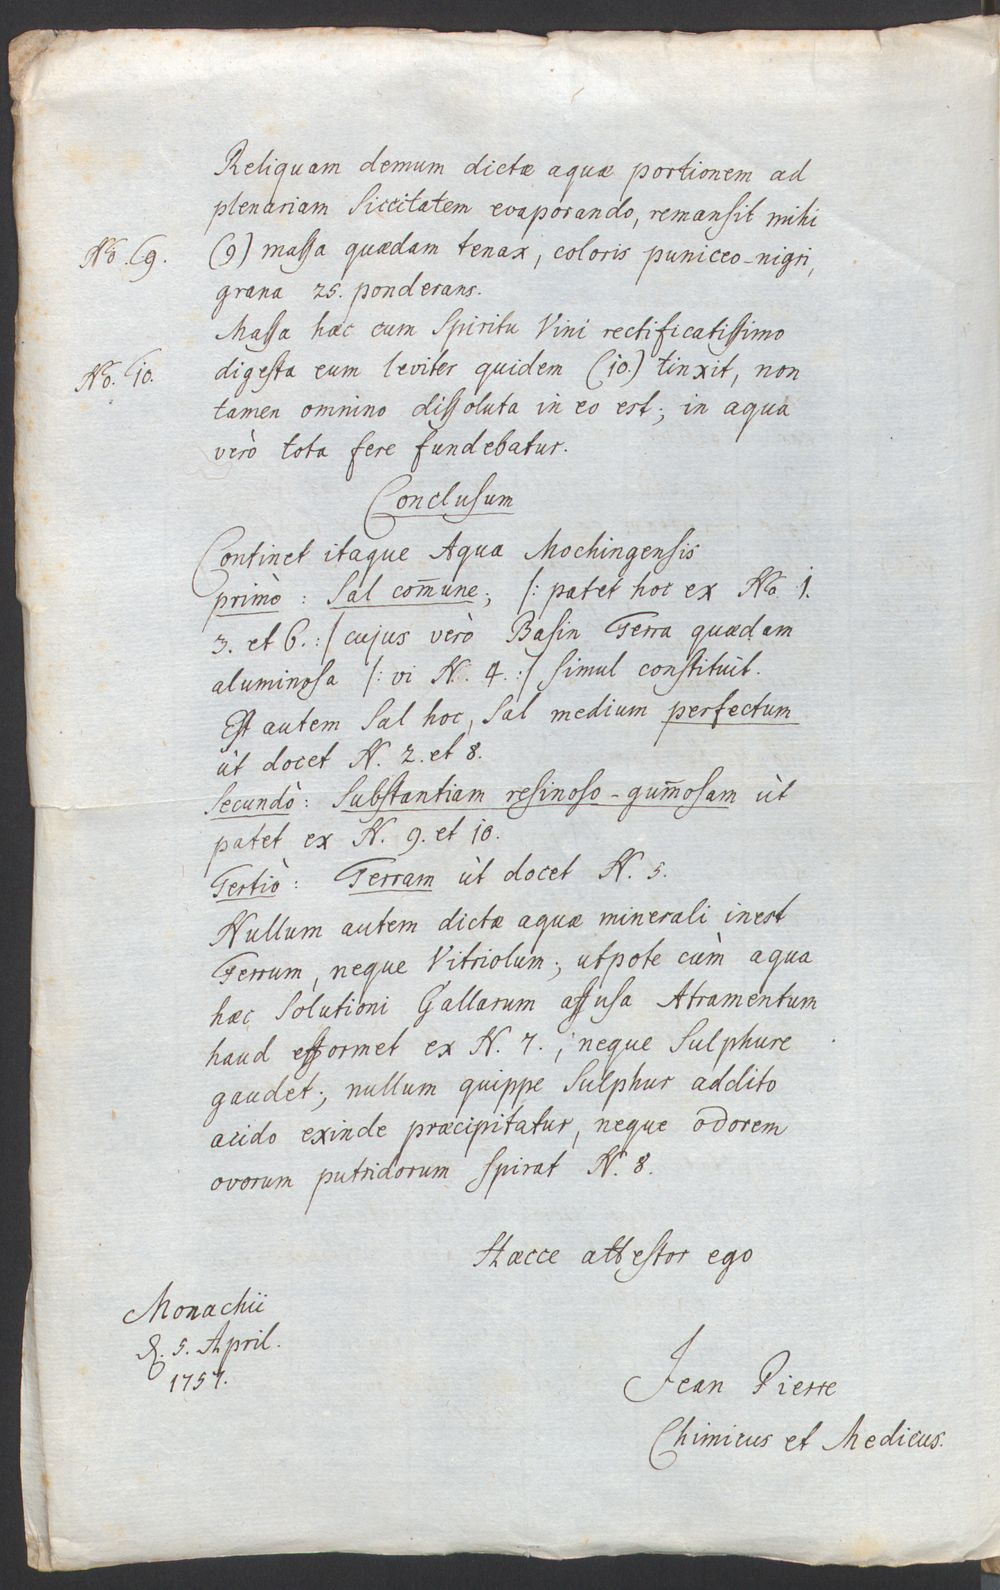 Reliquam demum dictæ aquæ portionem ad
plenariam Siccitatem evaporando, remansit mihi
No. (9.
(9) massa quædam tenax, coloris puniceo-nigri,
grana 25. ponderans.
Massa hæc cum Spiritu Vini rectificatissimo
No. 10.
digesta eum leviter quidem (10.) tinxit, non
tamen omnino dissoluta in eo est; in aqua
verò tota fere fundebatur.
Conclusum
Continet itaque Aqua Mochingensis
primò: Sal com̄une; /: patet hoc ex No 1.
3. et 6. :/ cujus verò Basin Terra quædam
aluminosa /: vi N. 4. :/ simul constituit.
Est autem Sal hoc, Sal medium perfectum
ùt docet N. 2. et 8.
Secundò: Substantiam resinoso-gum̄osam ùt
patet ex N. 9. et 10.
Tertiò: Terram ùt docet N. 5.
Nullum autem dictæ aquæ minerali inest
Ferrum, neque Vitriolum; utpote cùm aqua
hæc Solutioni Gallarum affusa Atramentum
haud efformet ex N. 7.; neque Sulphure
gaudet; nullum quippe Sulphur addito
acido exinde præcipitatur, neque odorem
ovorum putridorum spirat N. 8.
Hæcce attestor ego
Monachii
d. 5. April.
1757.
Jean Pierre
Chimicus et Medicus.